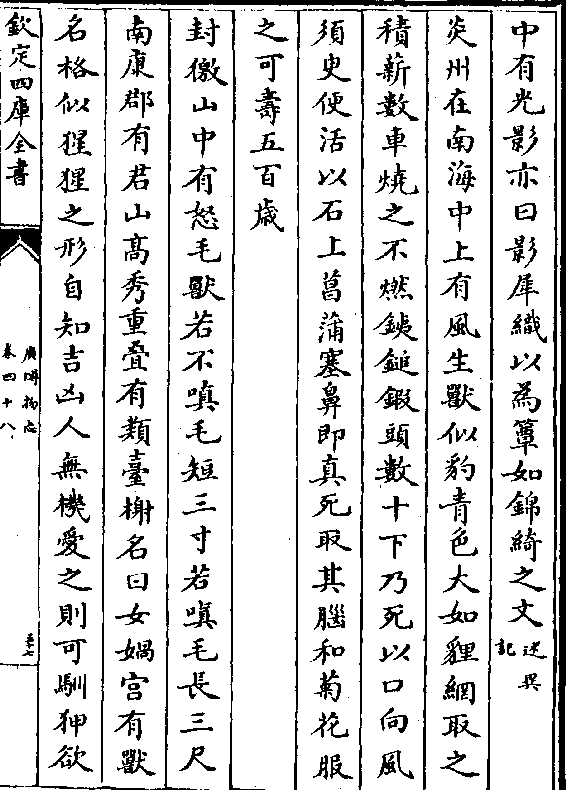 中有光影亦曰影犀織以為簟如錦綺之文述異記
炎州在南海中上有風生獸似豹青色大如貍網取之
積薪數車燒之不燃鐵鎚鍜頭數十下乃死以口向風
須臾便活以石上菖蒲塞鼻即真死取其腦和菊花服
之可壽五百歳
封檄山中有怒毛獸若不嗔毛短三寸若嗔毛長三尺
南康郡有君山高秀重疊有類臺榭名曰女媧宮有獸
名格似猩猩之形自知吉凶人無機愛之則可馴狎欲
欽定四庫全書
廣博物志
卷四十八